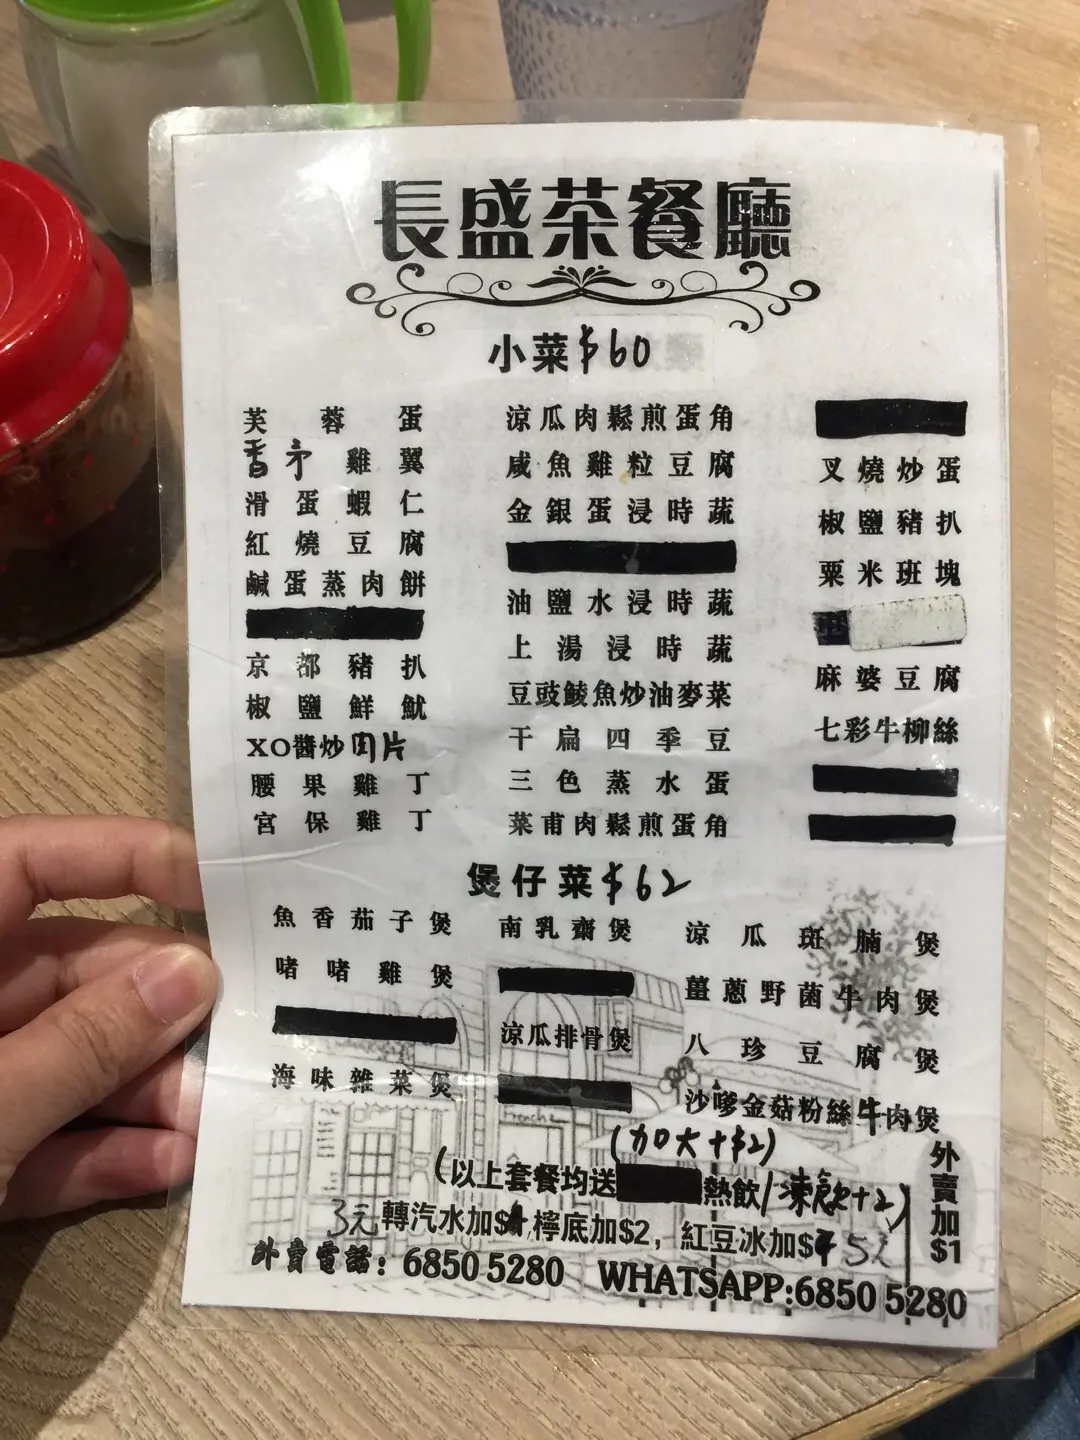 長盛茶餐廳
小菜$60
芙蓉蛋
香矛雞翼
滑蛋蝦仁
紅燒豆腐
鹹蛋蒸肉餅
京都豬扒
椒鹽鮮魷
XO醬炒肉片
腰果雞丁
宮保雞丁
涼瓜肉鬆煎蛋角
咸魚雞粒豆腐
金銀蛋浸時蔬
油鹽水浸時蔬
上湯浸時蔬
豆豉鯪魚炒油麥菜
干扁四季豆
三色蒸水蛋
菜甫肉鬆煎蛋角
叉燒炒蛋
椒鹽豬扒
粟米班塊
麻婆豆腐
七彩牛柳絲
煲仔菜$62
魚香茄子煲
啫啫雞煲
海味雜菜煲
南乳齋煲
涼瓜排骨煲
涼瓜斑腩煲
薑蔥野菌牛肉煲
八珍豆腐煲
沙嗲金菇粉絲牛肉煲
(加大+$2)
(以上套餐均送熱飲/凍飲+2)
3元轉汽水加$ 檸底加$2, 紅豆冰加$ 5元
外賣電話: 6850 5280 WHATSAPP:6850 5280
外賣加$1